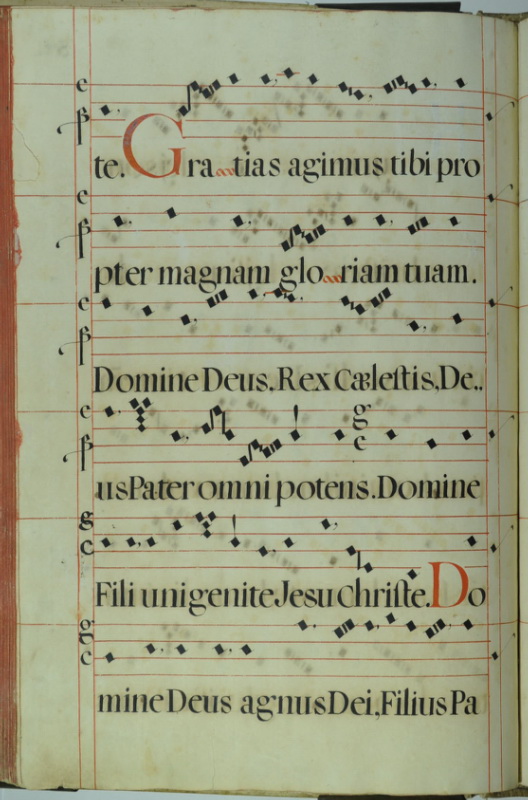 te. Gratias agimus tibi pro
pter magnam gloriam tuam.
Domine Deus, Rex Cælestis, De..
us Pater omnipotens. Domine
Fili unigenite Jesu Christe. Do
mine Deus agnus Dei, Filius Pa